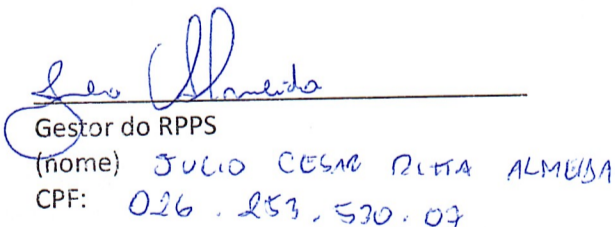 Julio Almeida
Gestor do RPPS
(nome) JULIO CESAR DITTA ALMEIDA
CPF: 026.253.530.07